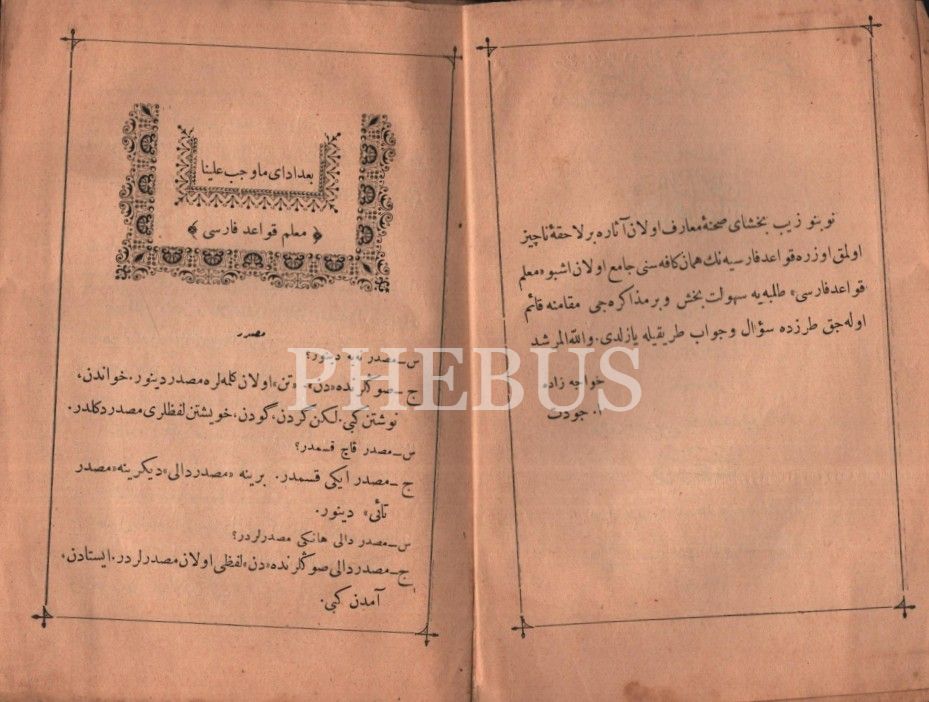 نوبنو زیب بخشای صحنهٔ معارف اولان آثاره بر لاحقهٔ ناچیز
اولمق اوزره قواعد فارسیه نك همان كافه سنی جامع اولان اشبو «معلم
قواعد فارسی» طلبه یه سهولت بخش و بر مذاكره جی مقامنه قائم
اوله جق طرزده سؤال و جواب طریقیله یازلدی. والله المرشد
خواجه زاده
ا. جودت
بعد ادای ما وجب علینا
﴿ معلم قواعد فارسی ﴾
مصدر
س ـ مصدر نه یه دینور؟
ج ـ صوكلرنده «دن» «تن» اولان كلمه لره مصدر دینور. خواندن،
نوشتن كبی. لكن گردن، گودن، خویشتن لفظلری مصدر دكلدر.
س ـ مصدر قاچ قسمدر؟
ج ـ مصدر ایكی قسمدر. برینه «مصدر دالی» دیكرینه «مصدر
تائی» دینور.
س ـ مصدر دالی هانكی مصدرلردر؟
ج ـ مصدر دالی صوكلرنده «دن» لفظی اولان مصدرلردر. ایستادن،
آمدن كبی.
PHEBUS